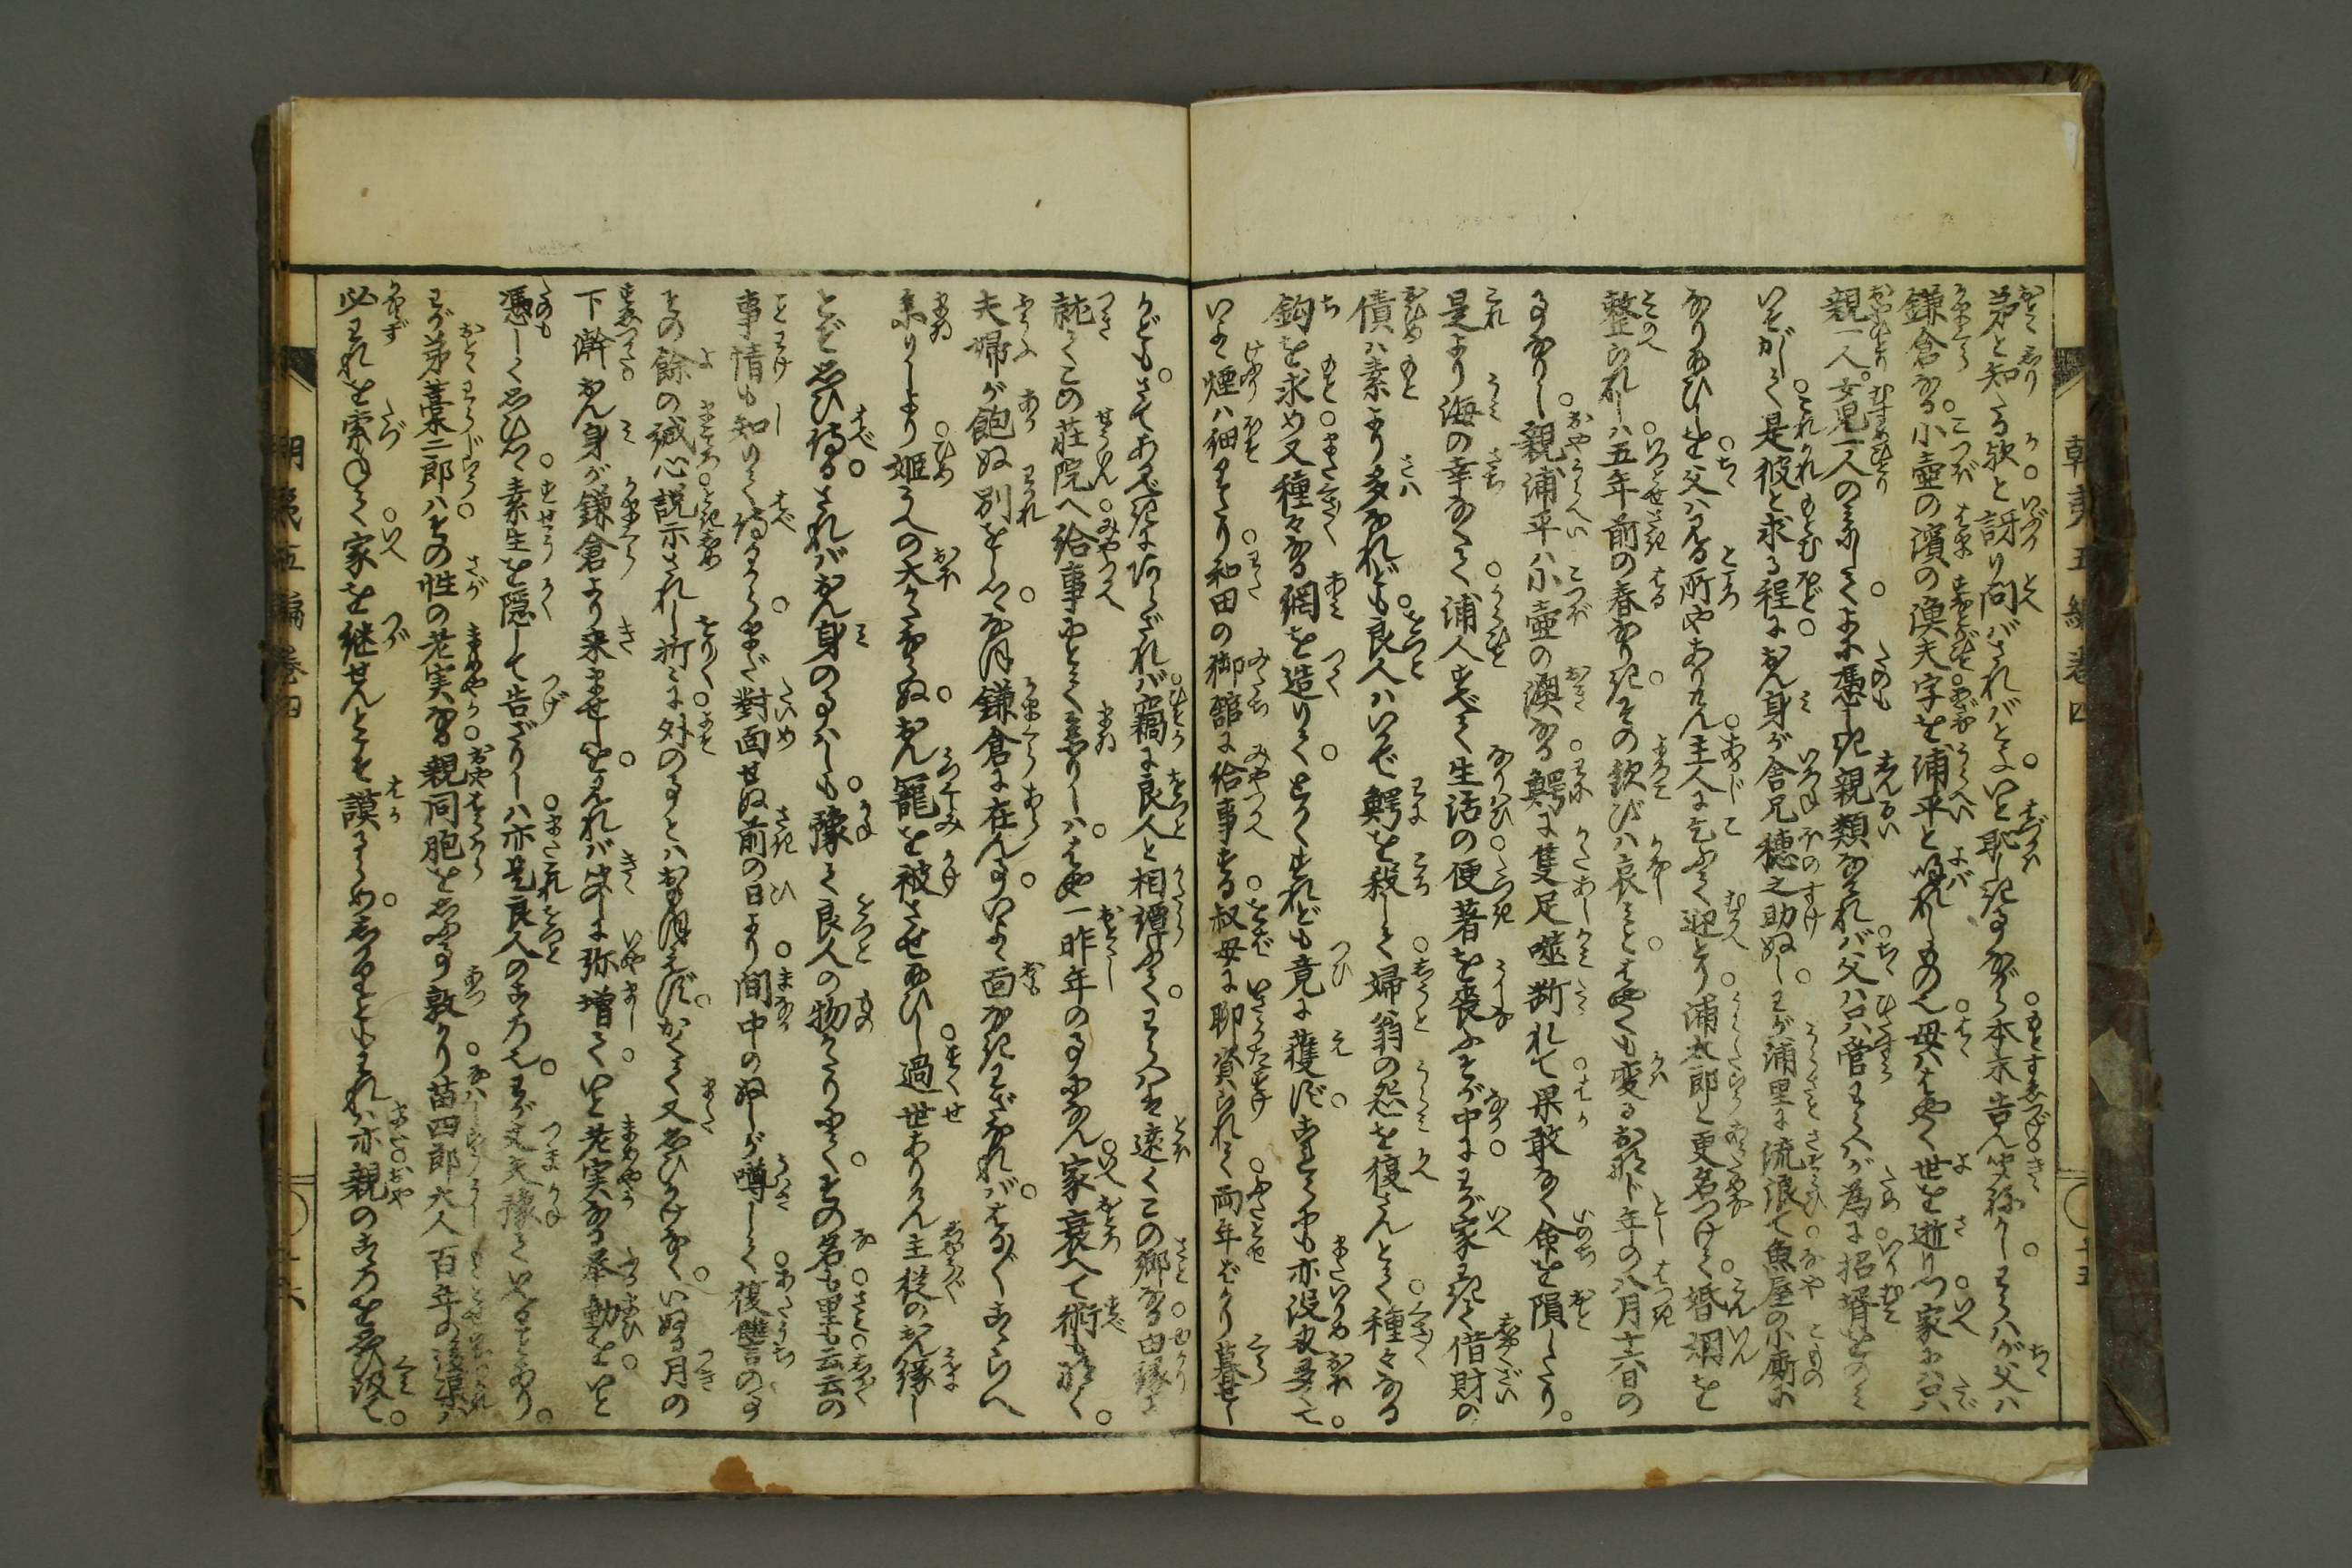 朝夷五編巻四
弟と知たる歟と訝り問ばさればとよいと恥しき事ながら本末告ん笑ひ給ふなわらはが父は
鎌倉なる小壺の濱の漁夫字を浦平と喚れしもの也母ははやく世を逝りつ家には只
親一人女児一人のみにしてよに憑しき親類なければ父は只管わらはが為に招婿をのみ
いそがして是彼と求る程におん身が舎兄穂之助ぬしわが浦里に流浪て魚屋の小廝に
なり給ひしを父は見る所やありけん主人に乞ふて迎とり浦太郎と更名つけて婚姻を
整られしは五年前の春なりきその歓びは哀みとはやくも変るおなじ年の八月十六日の
事なりし親浦平は小壺の澳なる鰐に隻足噬断れて果敢なく命を隕したり
是より海の幸なくて浦人すべて生活の便著を喪ふそが中にわが家はきて借財の
債は素より多かれども良人はいかで鰐を殺して婦翁の怨を復さんとて種々なる
鈎を求め又種々なる網を造りてとらくすれども竟に獲ずこゝにも亦没支多くて
いよゝ煙は細りたり和田の御館に給事する叔母に聊資られて両年ばかり暮せし
かどもさてあるべきにあらざれば竊に良人と相譚ふてわらはは遠くこの郷なる由縁に
就てこの荘院へ給事にとて参りしははや一昨年の事になん家衰へて術もなく
夫婦が飽ぬ別をしてなほ鎌倉に在ん事いよゝ面なきわざなればはるばるこゝらへ
参りしより姫うへの大かたならぬおん寵を被させ給ひし過世ありけん主従のおん縁し
とぞ思ひ侍るさればおん身の事はしも豫て良人の物かたりにてその名も里も云云の
事情も知りて侍るからまだ對面せぬ前の日より間中のぬしが噂して復讐の事
その餘の誠心説示されし折々に外の事とはおもほえずかくて又思ひかけなくいぬる月の
下澣おん身が鎌倉より来ませしを見れば聞しに弥増ていと老実なる挙動をいと
憑しく思ひつゝ素生を隠して告ざりしは亦是良人のこゝろ也わが丈夫豫ていへることあり
わが弟藁二郎はその性の老実なる親同胞を思ふ事敦かり苗四郎大人百年の後には
必われを索ねて家を継せんとこそ謨るらめしかりといはれは亦親のこゝろを汲て
朝夷五編巻四